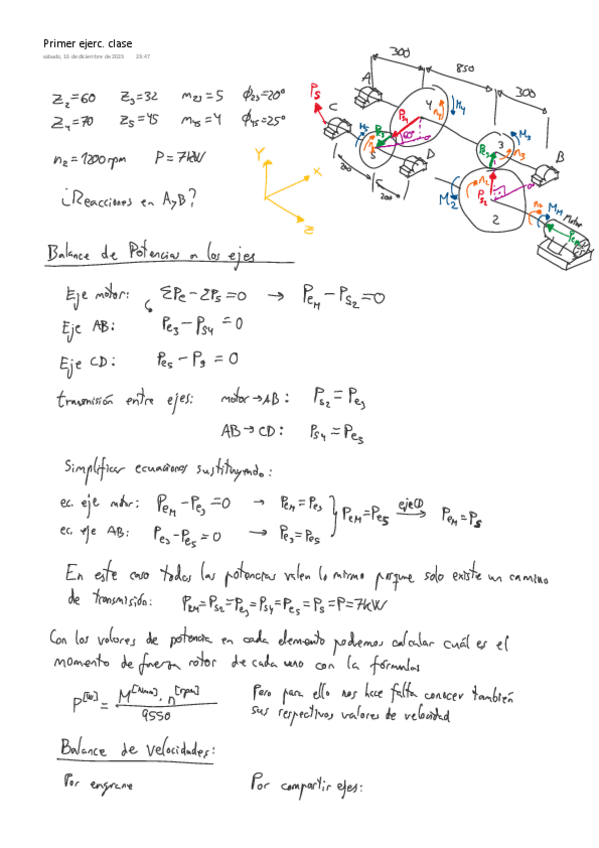 Primer ejerc. clase
sábado, 16 de diciembre de 2023 23:47
Z₂=60 Z₃=32 m₂₃=5 ϕ₂₃=20°
Z₄=70 Z₅=45 m₄₅=4 ϕ₄₅=25°
n₂=1200rpm P=7kW
¿Reacciones en A y B?
300
850
300
A
B
C
D
2
3
4
5
Y
X
Z
200
200
60°
Ps
Ps₄
Pe₅
Pe₃
Ps₂
M₄
M₅
M₃
M₂
n₄
n₃
n₂
Motor
Balance de Potencias a los ejes
Eje motor: ΣPe-ΣPs=0 → Pe_M-Ps₂=0
Eje AB: Pe₃-Ps₄=0
Eje CD: Pe₅-Ps=0
transmisión entre ejes: motor→AB: Ps₂=Pe₃
AB→CD: Ps₄=Pe₅
Simplificar ecuaciones sustituyendo:
ec. eje motor: Pe_M-Pe₃=0 → Pe_M=Pe₃
Pe_M=Pe₅ → Pe_M=Ps
ec. eje AB: Pe₃-Pe₅=0 → Pe₃=Pe₅
En este caso todas las potencias valen lo mismo porque solo existe un camino
de transmisión: Pe_M=Ps₂=Pe₃=Ps₄=Pe₅=Ps=P=7kW
Con los valores de potencia en cada elemento podemos calcular cuál es el
momento de fuerza rotor de cada uno con la fórmulas
P[kW]=M[N·m]·n[rpm]/9550
Pero para ello nos hace falta conocer también
sus respectivos valores de velocidad
Balance de velocidades:
Por engrane Por compartir ejes: